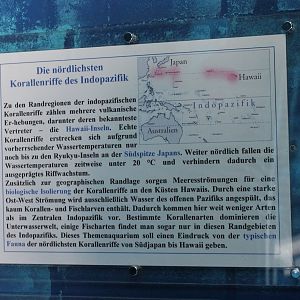 Die nördlichsten
Korallenriffe des Indopazifik
Japan
Hawaii
Indopazifik
Australien
Zu den Randregionen der indopazifischen
Korallenriffe zählen mehrere vulkanische
Er-hebungen, darunter deren bekannteste
Vertreter – die Hawaii-Inseln. Echte
Korallenriffe erstrecken sich aufgrund
vorherrschender Wassertemperaturen nur
noch bis zu den Ryukyu-Inseln an der Südspitze Japans. Weiter nördlich fallen die
Wassertemperaturen zeitweise unter 20 °C und verhindern dadurch ein
ausgeprägtes Riffwachstum.
Zusätzlich zur geographischen Randlage sorgen Meeresströmungen für eine
biologische Isolierung der Korallenriffe an den Küsten Hawaiis. Durch eine starke
Ost-West Strömung wird ausschließlich Wasser des offenen Pazifiks angespült, das
kaum Korallen- und Fischlarven enthält. Dadurch kommen hier weit weniger Arten
als im Zentralen Indopazifik vor. Bestimmte Korallenarten dominieren die
Unterwasserwelt, einige Fischarten findet man sogar nur in diesen Randgebieten
des Indopazifiks. Dieses Themenaquarium soll einen Eindruck von der typischen
Fauna der nördlichsten Korallenriffe von Südjapan bis Hawaii geben.